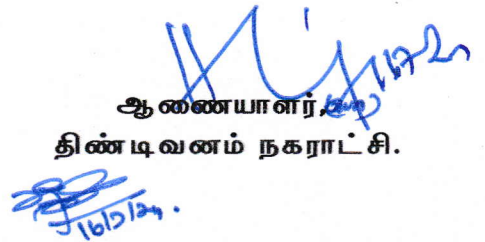 ஆணையாளர்,
திண்டிவனம் நகராட்சி.
16/7/24.